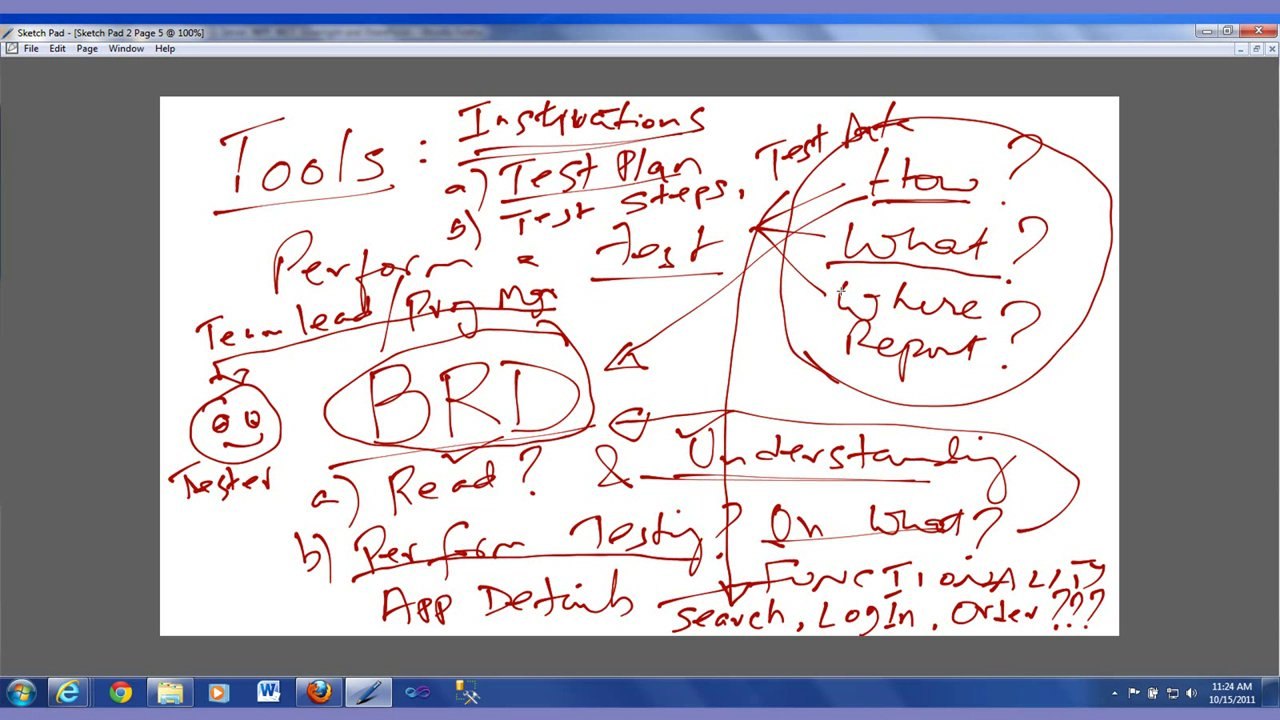 Sketch Pad - [Sketch Pad 2 Page 5 @ 100%]
File Edit Page Window Help
Tools : Instructions
a) Test Plan
b) Test Steps, Test Data
Perform a Test
How ?
What ?
Where ?
Report ?
Team lead / Prog Mgr
BRD
Tester
a) Read ? & Understanding
b) Perform Testing ? On What ?
App Details
FUNCTIONALITY
Search, LogIn, Order ???
11:24 AM
10/15/2011